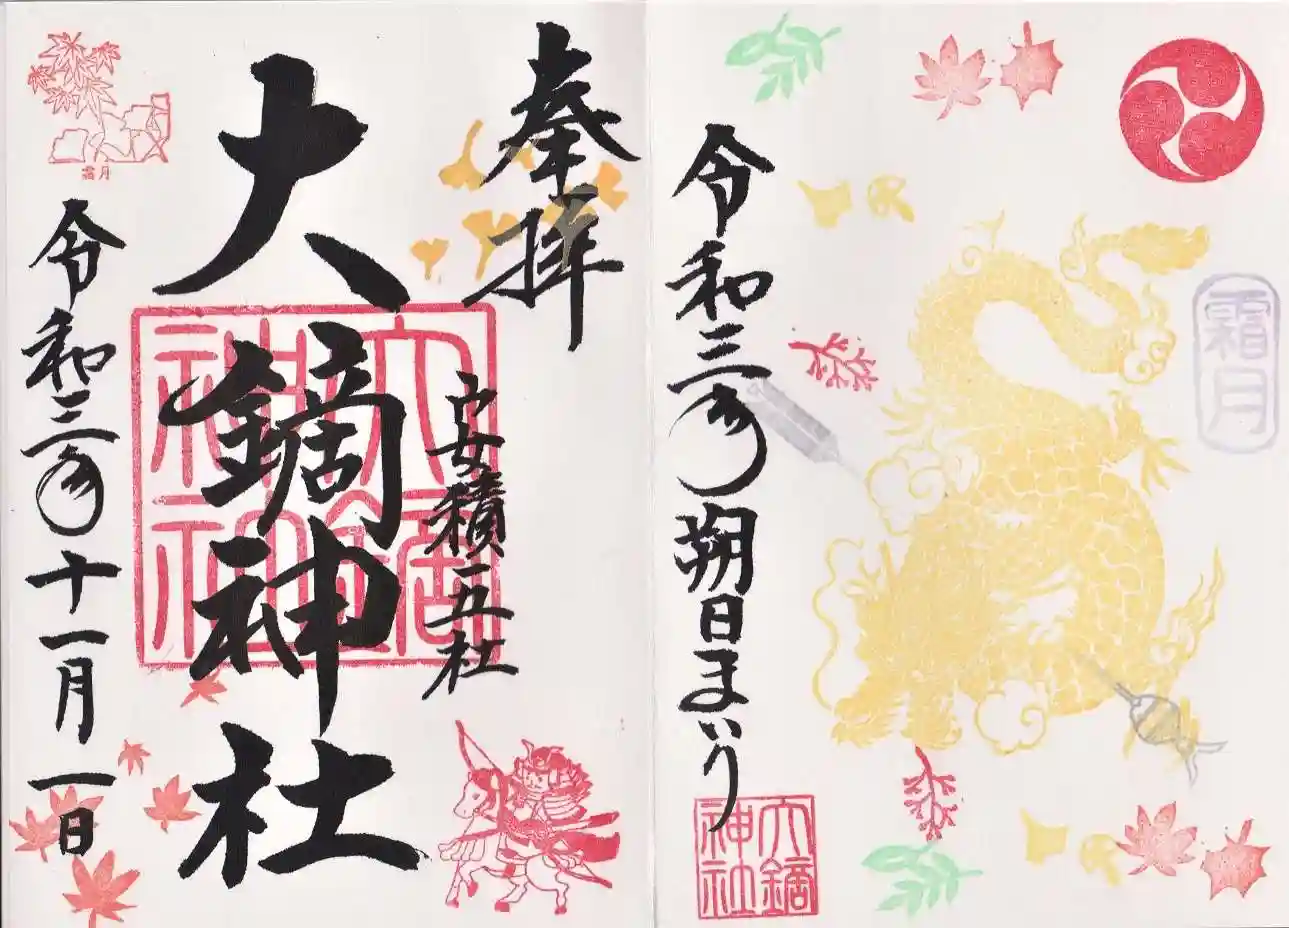 霜月
令和三年 朔日まいり
大鏑神社
奉拝
安積五社
大鏑神社
大鏑神社
霜月
令和三年十一月一日